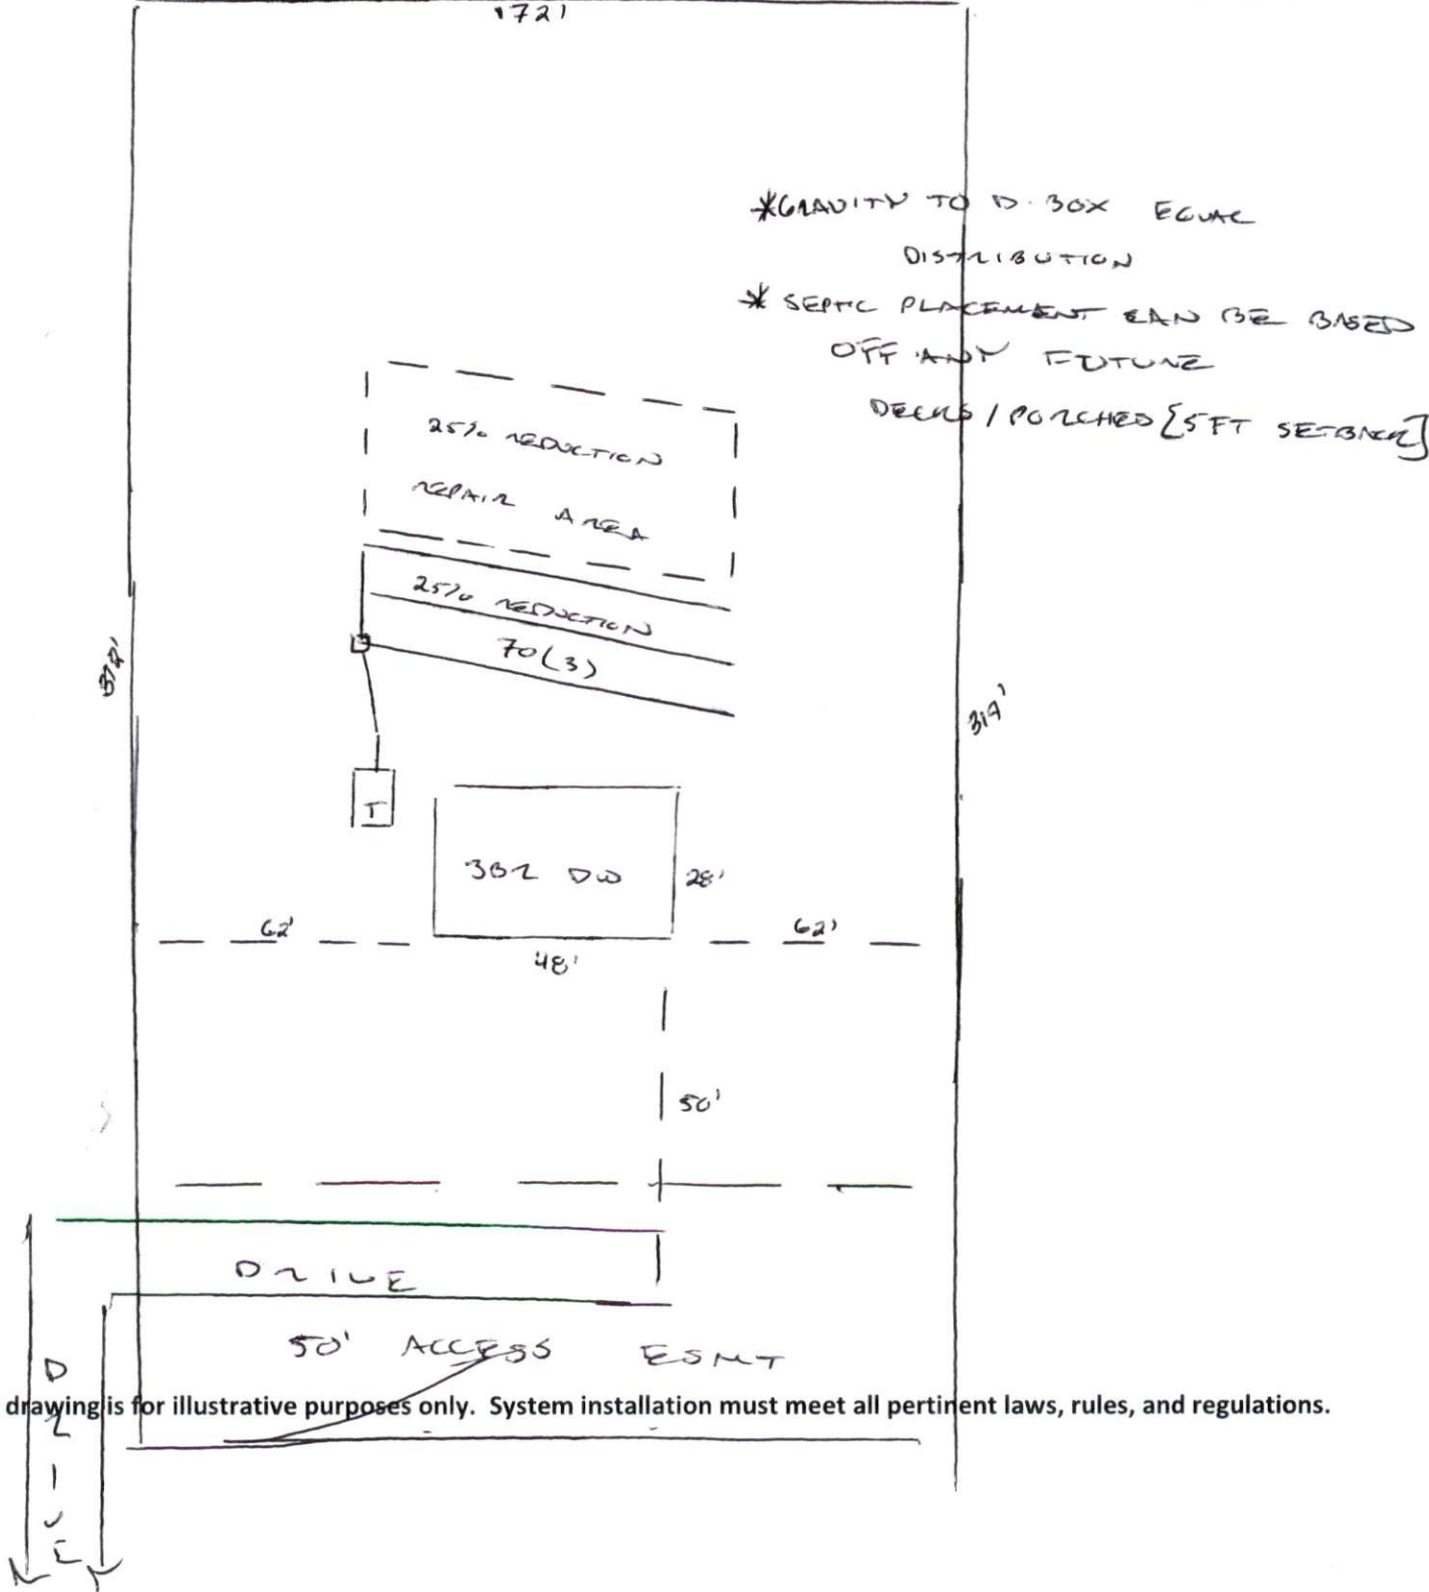 172'
*GRAVITY TO D-BOX EQUAL
DISTRIBUTION
* SEPTIC PLACEMENT CAN BE BASED
OFF ANY FUTURE
DECKS / PORCHED [5FT SETBACK]
25% REDUCTION
REPAIR AREA
25% REDUCTION
70(3)
319'
T
3BR DW
28'
62'
62'
48'
50'
DRIVE
50' ACCESS ESMT
DRIVE
drawing is for illustrative purposes only. System installation must meet all pertinent laws, rules, and regulations.